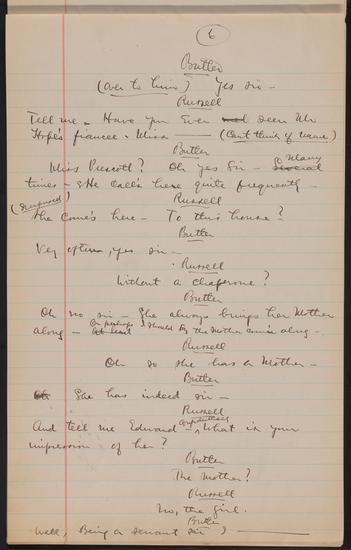 6
Butler
(over to him) Yes sir -
Russell
Tell me - Have you ever seen Mr
Hope's fiancee - Miss —— (Can't think of name)
Butler
Miss Prescott? Oh yes Sir - Many
times - She calls here quite frequently -
Russell
(surprised)
She comes here - To this house?
Butler
Very often, yes sir -
Russell
Without a chaperone?
Butler
Oh no sir - She always brings her Mother
along - Or perhaps I should say the Mother comes along -
Russell
Oh so she has a Mother -
Butler
She has indeed sir -
Russell
And tell me Edward - What is your
impression of her?
Butler
The Mother?
Russell
No, the girl.
Butler
Well, Being a servant sir I ——